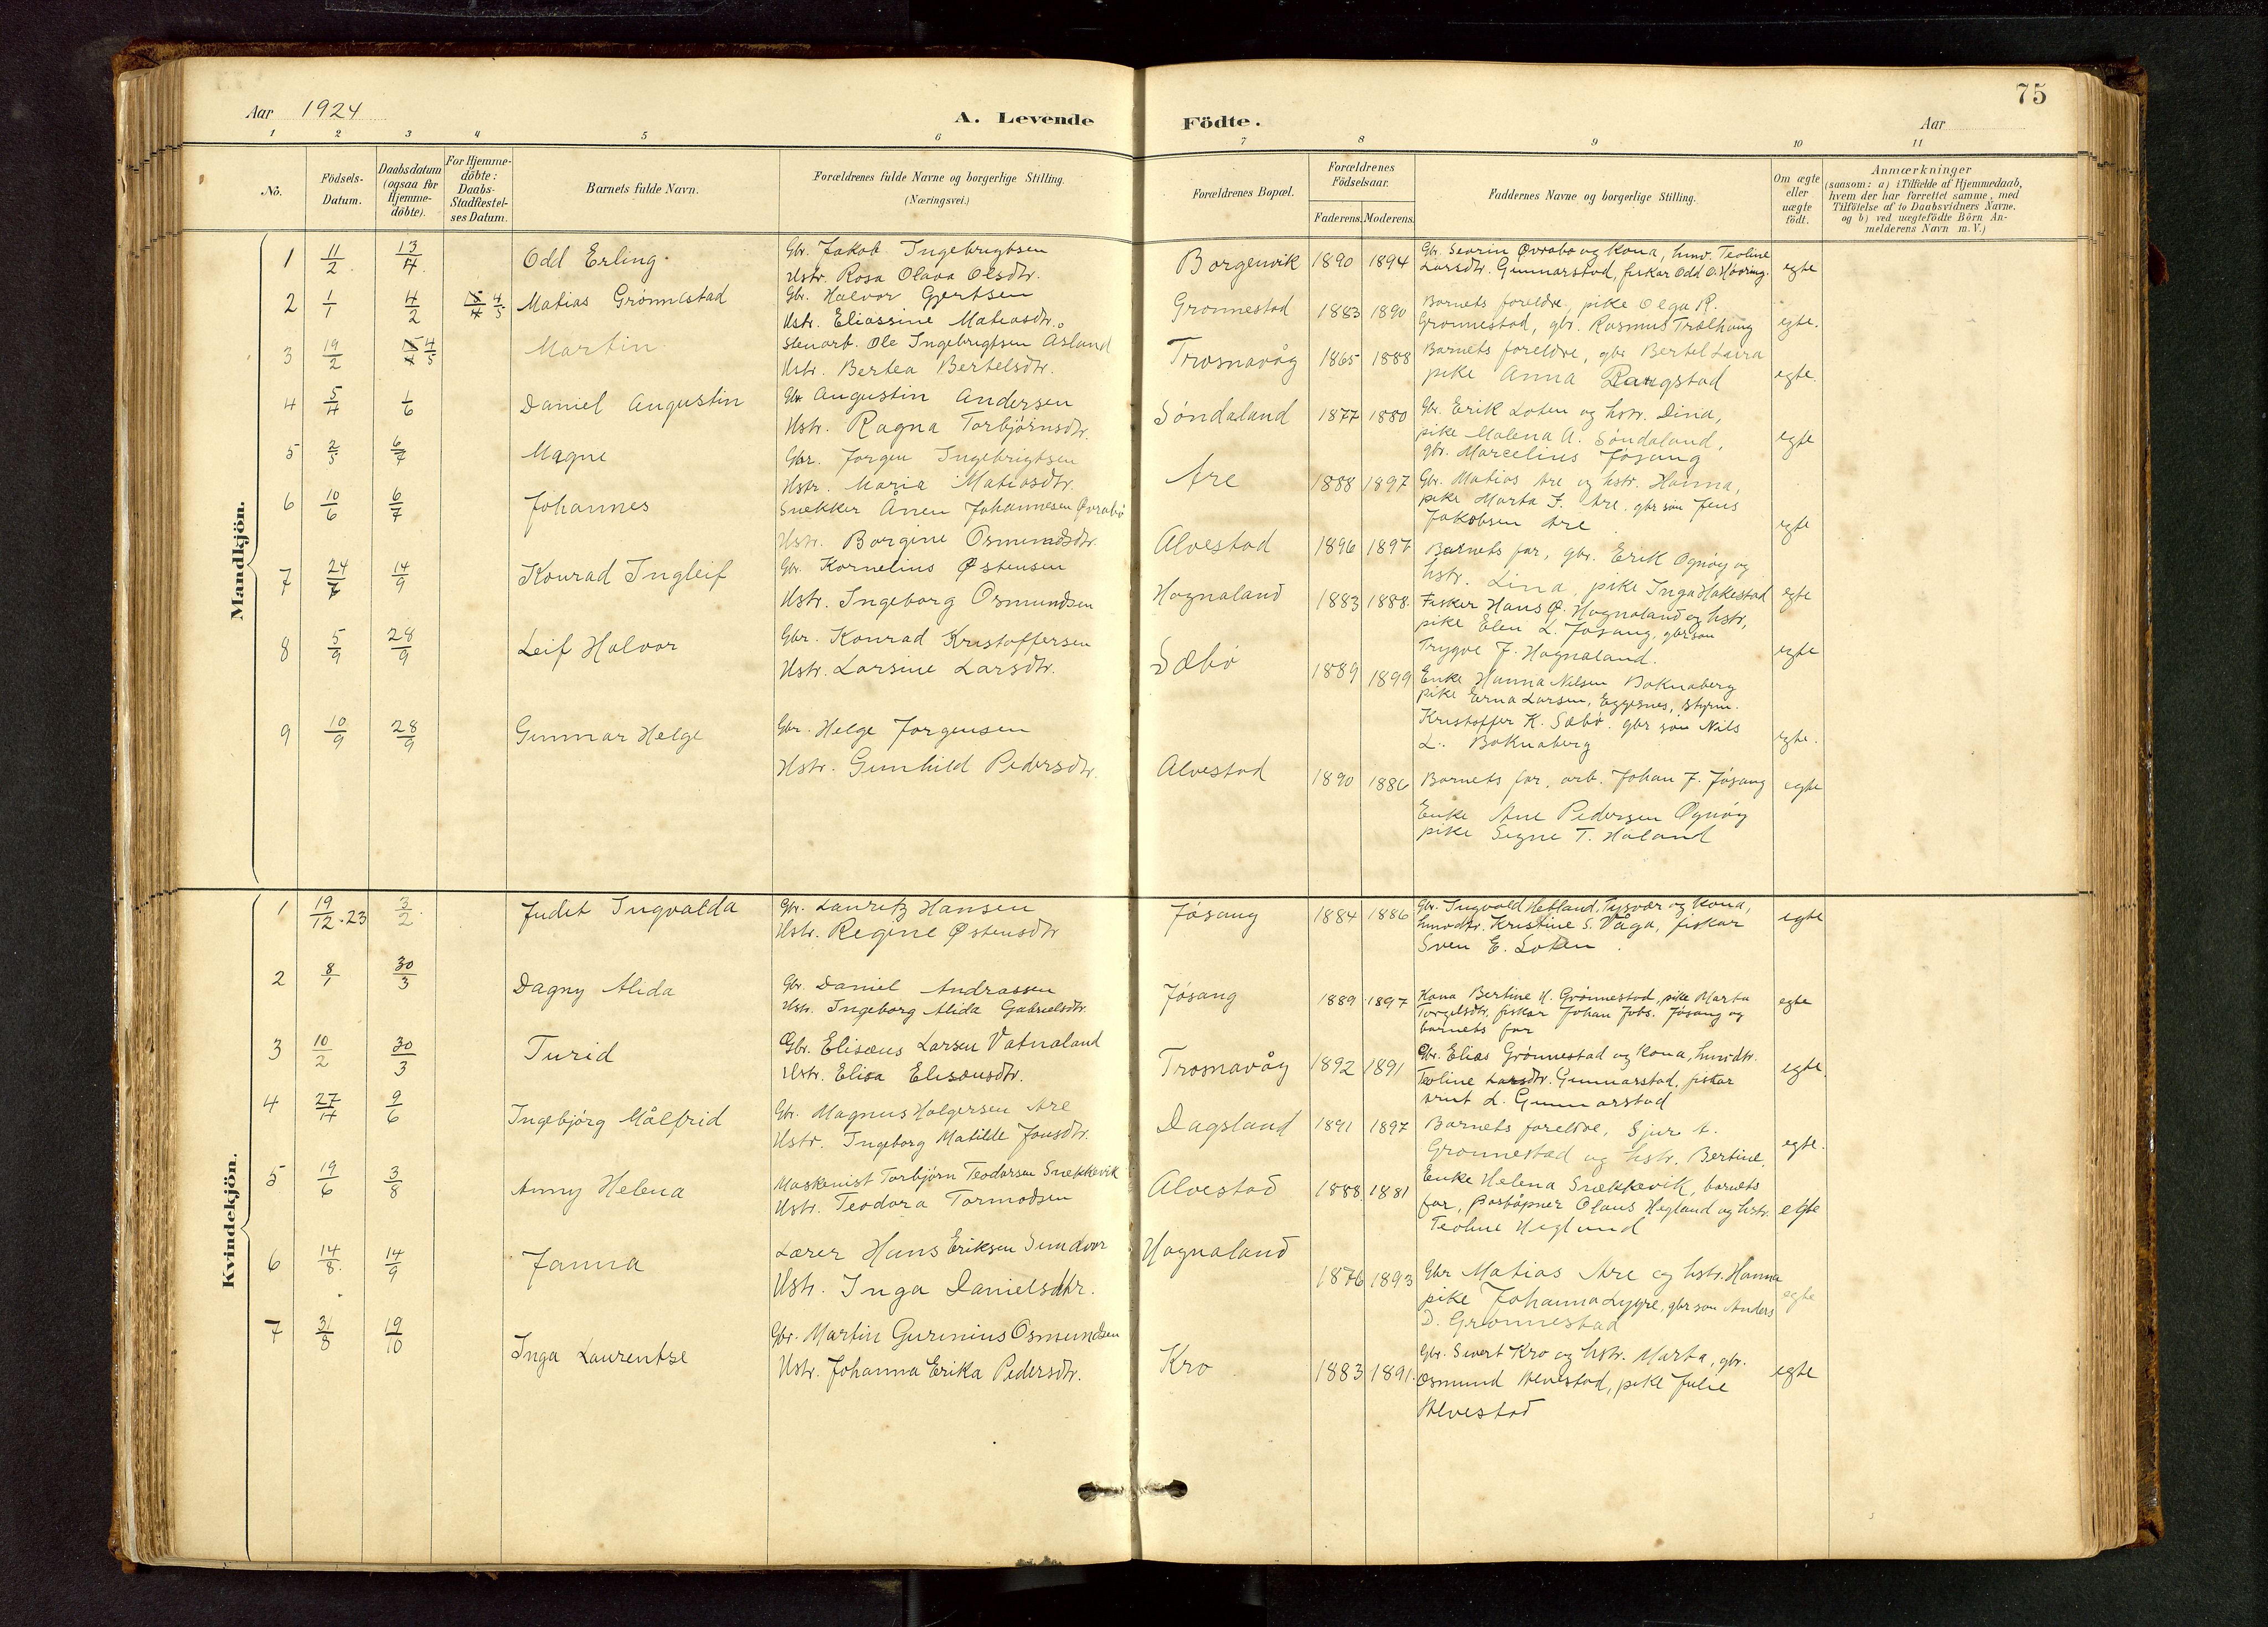 75
Aar 1924
A. Levende
Födte.
Aar
1 2 3 4 5 6 7 8 9 10 11
Nö.
Födsels-
Datum.
Daabsdatum
(ogsaa for
Hjemme-
döbte).
For Hjemme-
döbte:
Daabs-
Stadfæstel-
ses Datum.
Barnets fulde Navn.
Forældrenes fulde Navne og borgerlige Stilling.
(Næringsvei.)
Forældrenes Bopæl.
Forældrenes
Födselsaar.
Faderens. Moderens.
Faddernes Navne og borgerlige Stilling.
Om ægte
eller
uægte
födt.
Anmærkninger
(saasom: a) i Tilfælde af Hjemmedaab,
hvem der har forrettet samme, med
Tilföielse af to Daabsvidners Navne.
og b) ved uægtefödte Börn An-
melderens Navn m. V.)
Mandkjön.
1 11/2 13/4 Odd Erling
Gbr. Jakob Ingebrigtsen
Hstr. Rosa Olava Olsdtr.
Borgenvik 1890 1894
Gbr. Sevrin Øvrabø og kona, hmv. Teoline
Larsdtr. Gunnarstad, fiskar Odd O. Høvring.
egte
2 1/1 4/2 4/5 Matias Grønnestad
Gbr. Halvor Gjertsen
Hstr. Eliassine Matiasdtr.
Grønnestad 1883 1890
Barnets foreldre, pike Olga R.
Grønnestad, gbr. Rasmus Trælhaug
egte.
3 19/2 4/5 Martin
Stenarb. Ole Ingebrigtsen Åsland
Hstr. Bertea Bertelsdtr.
Trosnavåg 1865 1888
Barnets foreldre, gbr. Bertel
pike Anna Rangstad
egte.
4 5/4 1/6 Daniel Augustin
Gbr. Augustin Andersen
Hstr. Ragna Torbjørnsdtr.
Søndaland 1877 1880
Gbr. Erik Loten og hstr. Dina,
pike Malena A. Søndaland,
gbr. Marcelius Jøsang
egte
5 2/5 6/7 Magne
Gbr. Jørgen Ingebrigtsen
Hstr. Maria Matiasdtr.
Are 1888 1897
Gbr. Matias Are og hstr. Hanna,
pike Marta J. Are, gbr søn Jens
Jakobsen Are
egte
6 10/6 6/7 Johannes
Snekker Ånen Johannesen Øvrabø
Hstr. Borgine Osmundsdtr.
Alvestad 1896 1897
Barnets far, gbr. Erik Ognøy og
hstr. Lina, pike Inga Hakestad
egte
7 24/7 14/9 Konrad Ingleif
Gbr. Kornelius Østensen
Hstr. Ingeborg Osmundsen
Hognaland 1883 1888.
Fisker Hans Ø. Hognaland og hstr,
pike Elen L. Jøsang, gbr søn
Trygve J. Hognaland.
egte
8 5/9 28/9 Leif Halvor
Gbr. Konrad Kristoffersen
Hstr. Larsine Larsdtr.
Sæbø 1889 1899
Enke Hanna Nilsen Boknaberg
pike Erna Larsen, Eggesnes, styrm.
Kristoffer K. Sæbø. gbr søn Nils
L. Boknaberg
egte.
9 10/9 28/9 Gunnar Helge
Gbr. Helge Jørgensen
Hstr. Gunhild Pedersdtr.
Alvestad 1890 1886
Barnets far, arb. Johan J. Jøsang
Enke Ane Pedersen Ognøy
pike Signe T. Håland
egte
Kvindekjön.
1 19/12.23 3/2 Judit Ingvalda
Gbr. Lauritz Hansen
Hstr. Regine Østensdtr
Jøsang 1884 1886
Gbr. Ingvald Hetland, Tysvær og kona,
hmvdtr. Kristine S. Våga, fiskar
Sven E. Loten.
egte
2 8/1 30/3 Dagny Alida
Gbr. Daniel Andrassen
Hstr. Ingeborg Alida Gabrielsdtr.
Jøsang 1889 1897
Kona Bertine H. Grønnestad, pike Marta
Torgilsdtr, fiskar Johan Jobs. Jøsang og
barnets far
egte
3 10/2 30/3 Turid
Gbr. Elisæus Larsen Vatnaland
Hstr. Elisa Elisæusdtr.
Trosnavåg 1892 1891
Gbr. Elias Grønnestad og kona, hmvdtr.
Teoline Larsdtr. Gunnarstad, fiskar
Arnt L. Gunnarstad
egte.
4 27/4 9/6 Ingebjørg Målfrid
Gbr. Magnus Holgersen Are
Hstr. Ingeborg Matilde Jonsdtr.
Dagsland 1891 1897
Barnets foreldre, Sjur A.
Grønnestad og hstr. Bertine.
egte.
5 19/6 3/8 Anny Helena
Maskenist Torbjørn Teodorsen Snekkevik
Hstr. Teodora Tormodsen
Alvestad 1888. 1881
Enke Helena Snekkevik, barnets
far, postopner Olaus Hegland og hstr.
Teoline Hegland
egte
6 14/8. 14/9 Janna
Lærer Hans Eriksen Sundvor
Hstr. Inga Danielsdtr.
Hognaland 1876 1893
Gbr Matias Are og hstr. Hanna
pike Johanna Lygre, gbr søn Anders
D. Grønnestad
egte
7 31/8 19/10 Inga Laurentse
Gbr. Martin Gurinius Osmundsen
Hstr. Johanna Erika Pedersdtr.
Kro 1883 1891.
Gbr. Sivert Kro og hstr. Marta, gbr.
Osmund Alvestad, pike Julie
Alvestad
egte